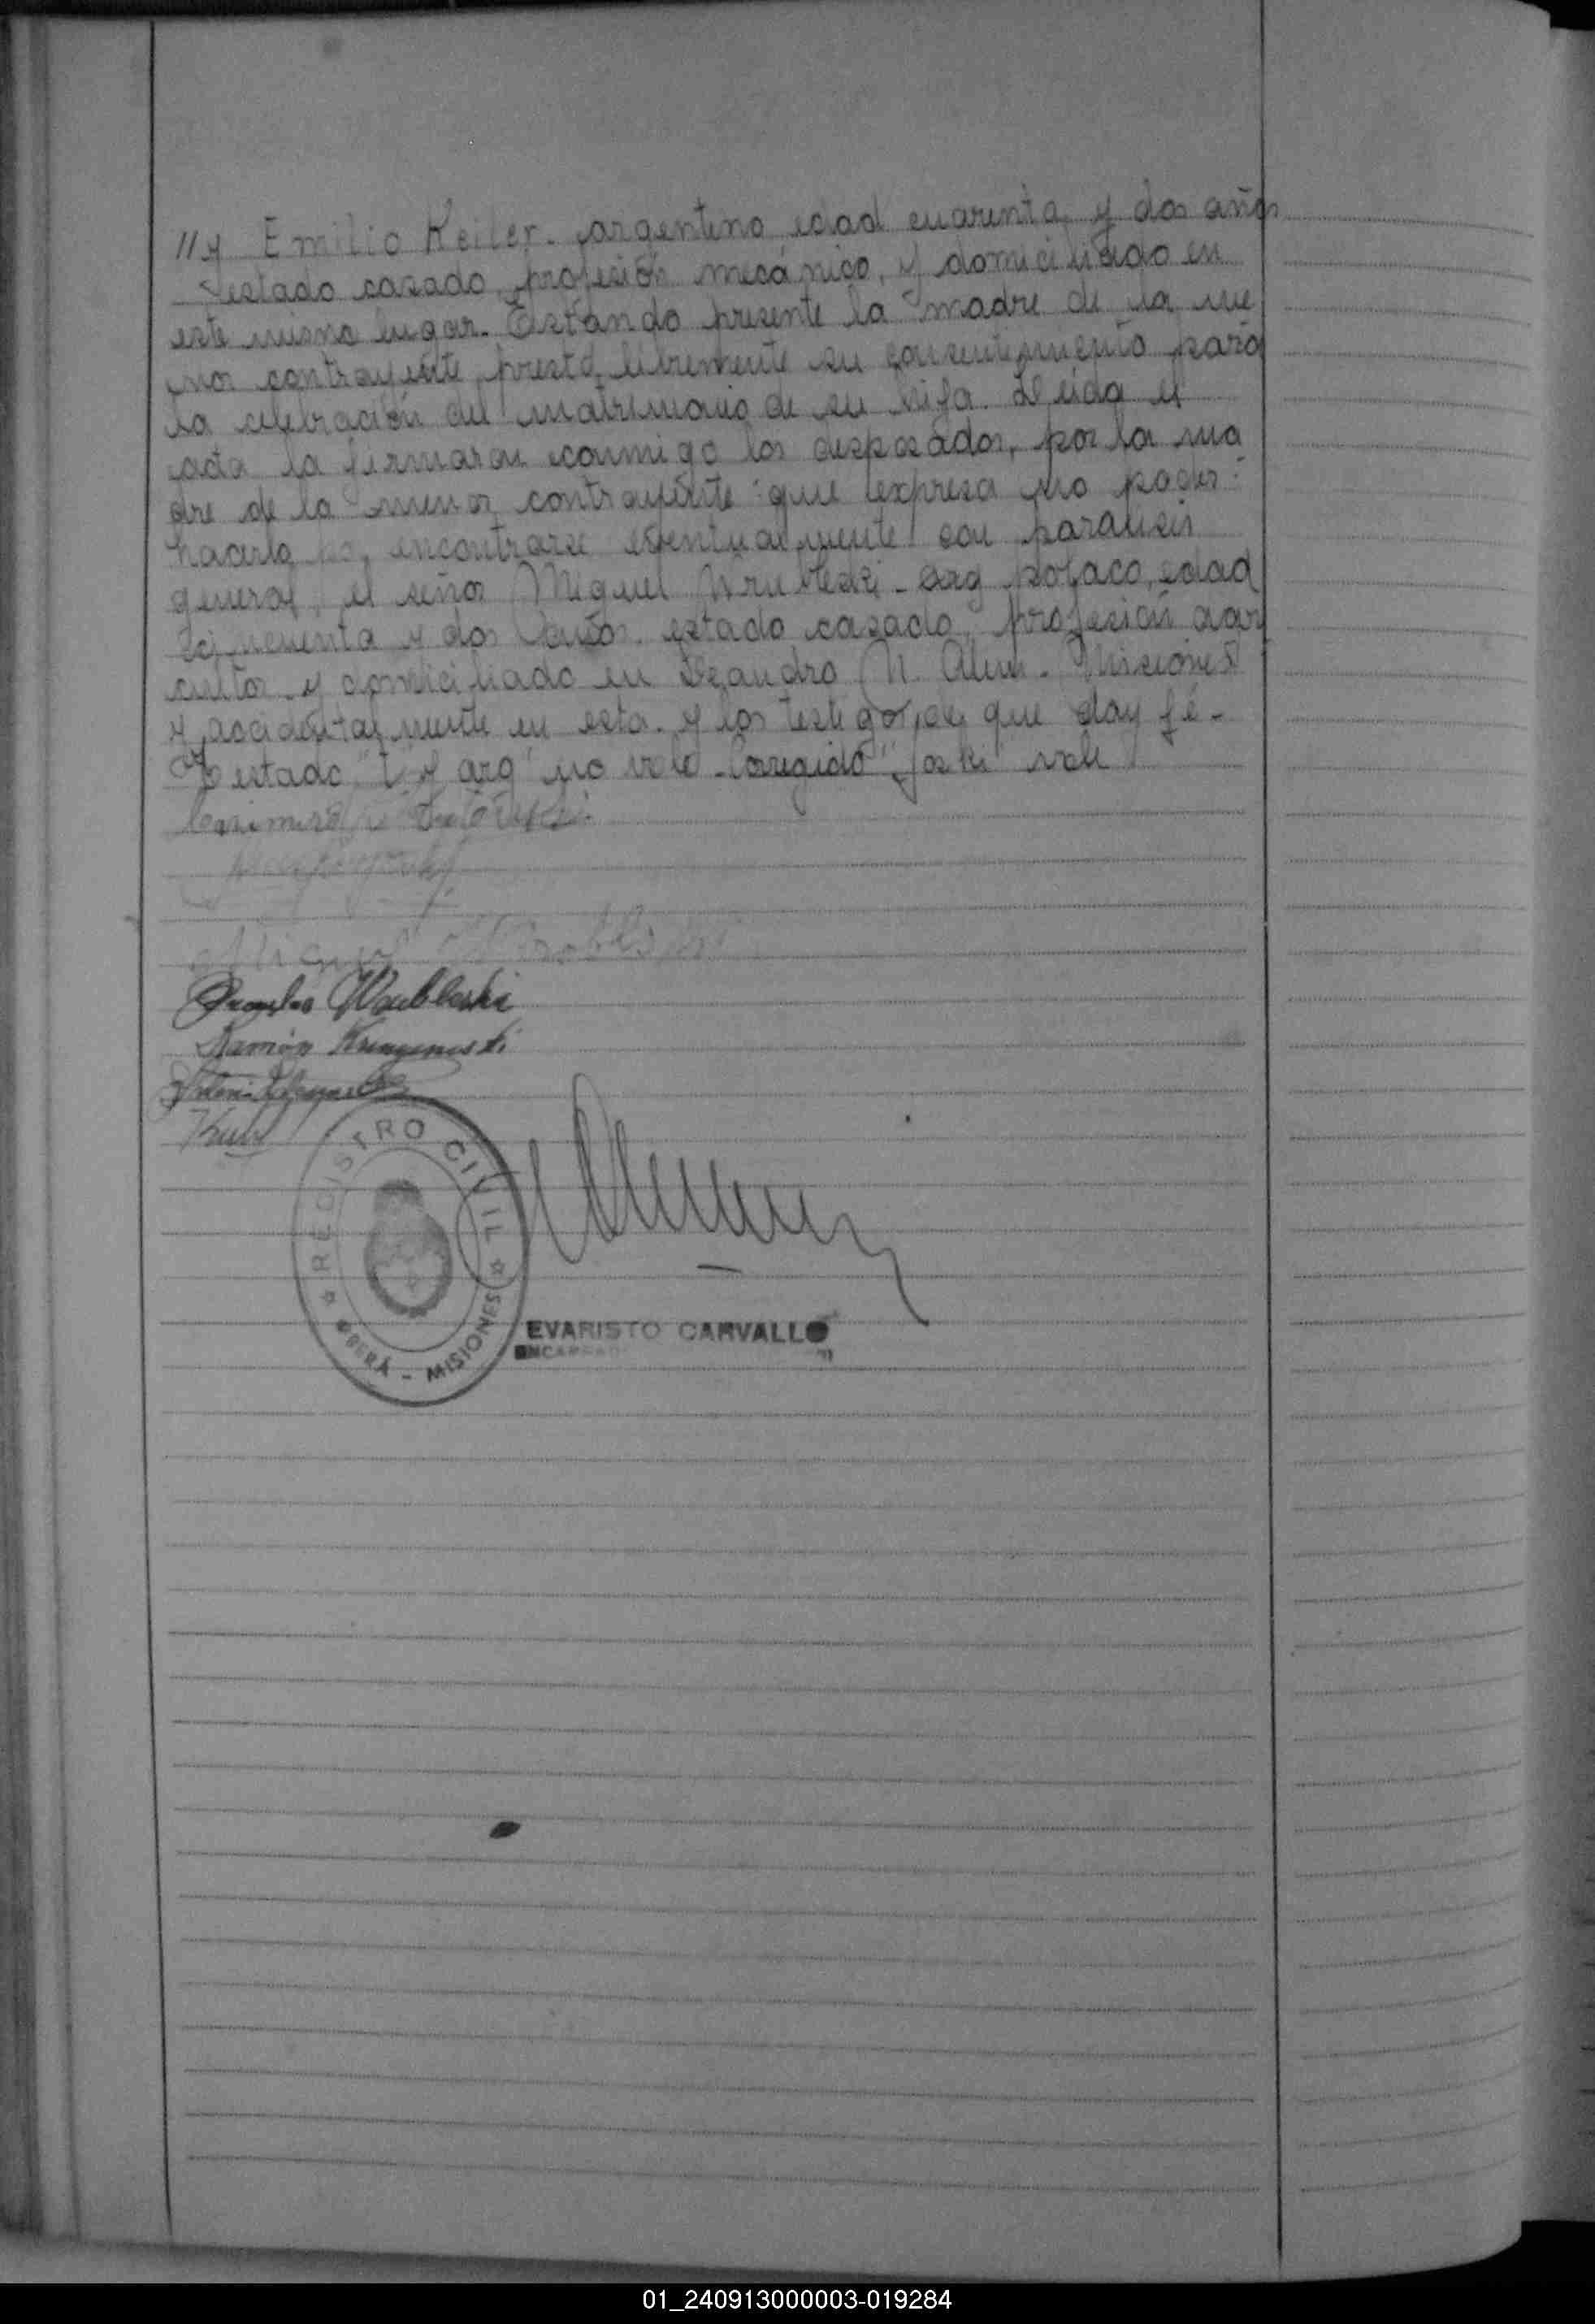 //y Emilio Keiler. argentino edad cuarenta y dos años
estado casado, profesión mecánico, y domiciliado en
este mismo lugar. Estando presente la madre de la me
nor contrayente prestó libremente su consentimiento para
la celebración del matrimonio de su hija. Leida el
acta la firmaron conmigo los desposados, por la ma
dre de la menor contrayente que expresa no poder
hacerlo por encontrarse eventualmente con paralisis
general, el señor Miguel Wrubleski - arg polaco, edad
cincuenta y dos años. estado casado, profesión agri
cultor y domiciliado en Leandro N. Alem. Misiones
y accidentalmente en esta. y los testigos, de que doy fé -
estado "t y arg" no vale - Corregido "joski" vale
Casimiro
Miguel
Wrubleski
Ramón
REGISTRO CIVIL
OBERÁ - MISIONES
EVARISTO CARVALLO
ENCARGADO
01_240913000003-019284